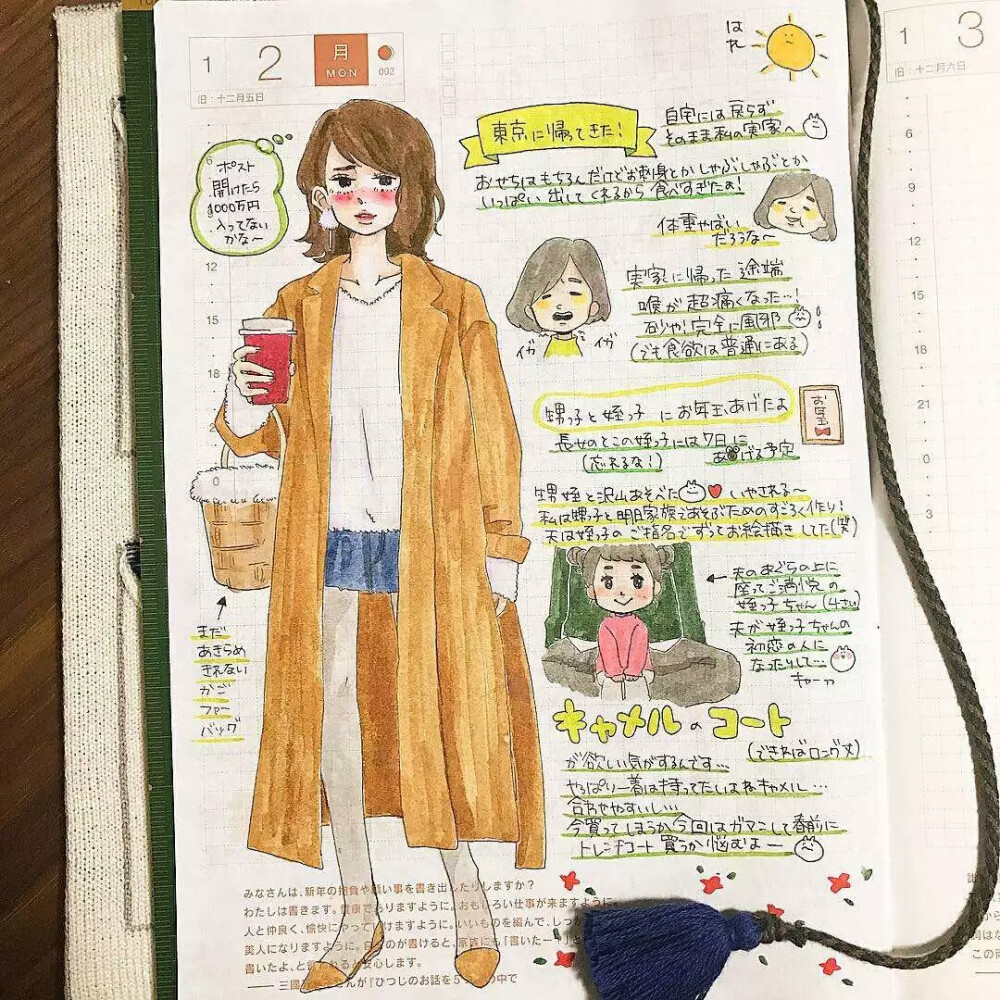 1
2
月
MON
002
旧:十二月五日
はれ
東京に帰ってきた!
自宅には戻らず
そのまま私の実家へ
おせちはもちろんだけどお刺身とかしゃぶしゃぶとか
いっぱい出してくれるから食べすぎたよ!
体重やばい
だろうな〜
実家に帰った途端
喉が超痛くなった…!
完全に風邪
(でも食欲は普通にある)
イガ
イガ
甥っ子と姪っ子にお年玉あげたよ
お年玉
姪っ子には7日に
あげる予定
(忘れるな!)
甥姪と沢山あそべた
いやされる〜
私は甥っ子と明日家族であそぶためのすごろく作り!
夫は姪っ子のご指名でずっとお絵描きしてた(笑)
←夫のあぐらの上に
座ってご満悦の
姪っ子ちゃん(4さい)
夫が姪っ子ちゃんの
初恋の人に
なったりして…
キャー
キャメルのコート
(できればロング丈)
が欲しい気がするんです…
やっぱり一着は持ってたいよねキャメル…
合わせやすいし…
今買ってしまうか今回はガマンして春前に
トレンチコート買うか悩むよー
6
ポスト
開けたら
1000万円
入ってない
かな〜
12
15
18
21
0
3
まだ
あきらめ
きれない
かご
ファー
バッグ
みなさんは、新年の抱負や願い事を書き出したりしますか?
わたしは書きます。健康でありますように。おもしろい仕事が来ますように。
人と仲良く、愉快にやっていけますように。いいものを編んで、しっか
美人になりますように。
書いたよ、と
安心します。
さんが『ひつじのお話を5
の中で
1
3
旧:十二月六日
6
9
12
15
18
21
0
3
から
この